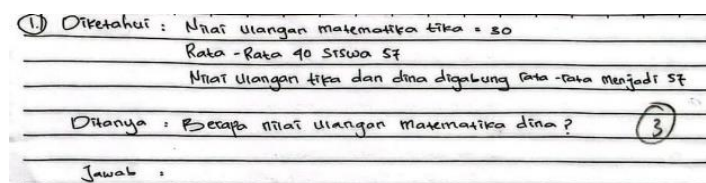 1.) Diketahui : Nilai ulangan matematika tika = 50
Rata - Rata 40 siswa 57
Nilai ulangan tika dan dina digabung rata - rata menjadi 57
Ditanya : Berapa nilai ulangan matematika dina ?
3
Jawab :